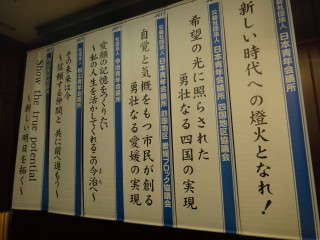 公益社団法人 日本青年会議所
新しい時代への燈火となれ!
公益社団法人 日本青年会議所 四国地区協議会
希望の光に照らされた
勇壮なる四国の実現
公益社団法人 日本青年会議所 四国地区 愛媛ブロック協議会
自覚と気概をもつ市民が創る
勇壮なる愛媛の実現
今治青年会議所
愛顔の記憶をつくりたい
~私の人生を活かしてくれるこの今治へ~
青年会議所
その未来は今
~信頼する仲間と 共に前へ進もう~
Show the true potential
~新しい明日を拓く~